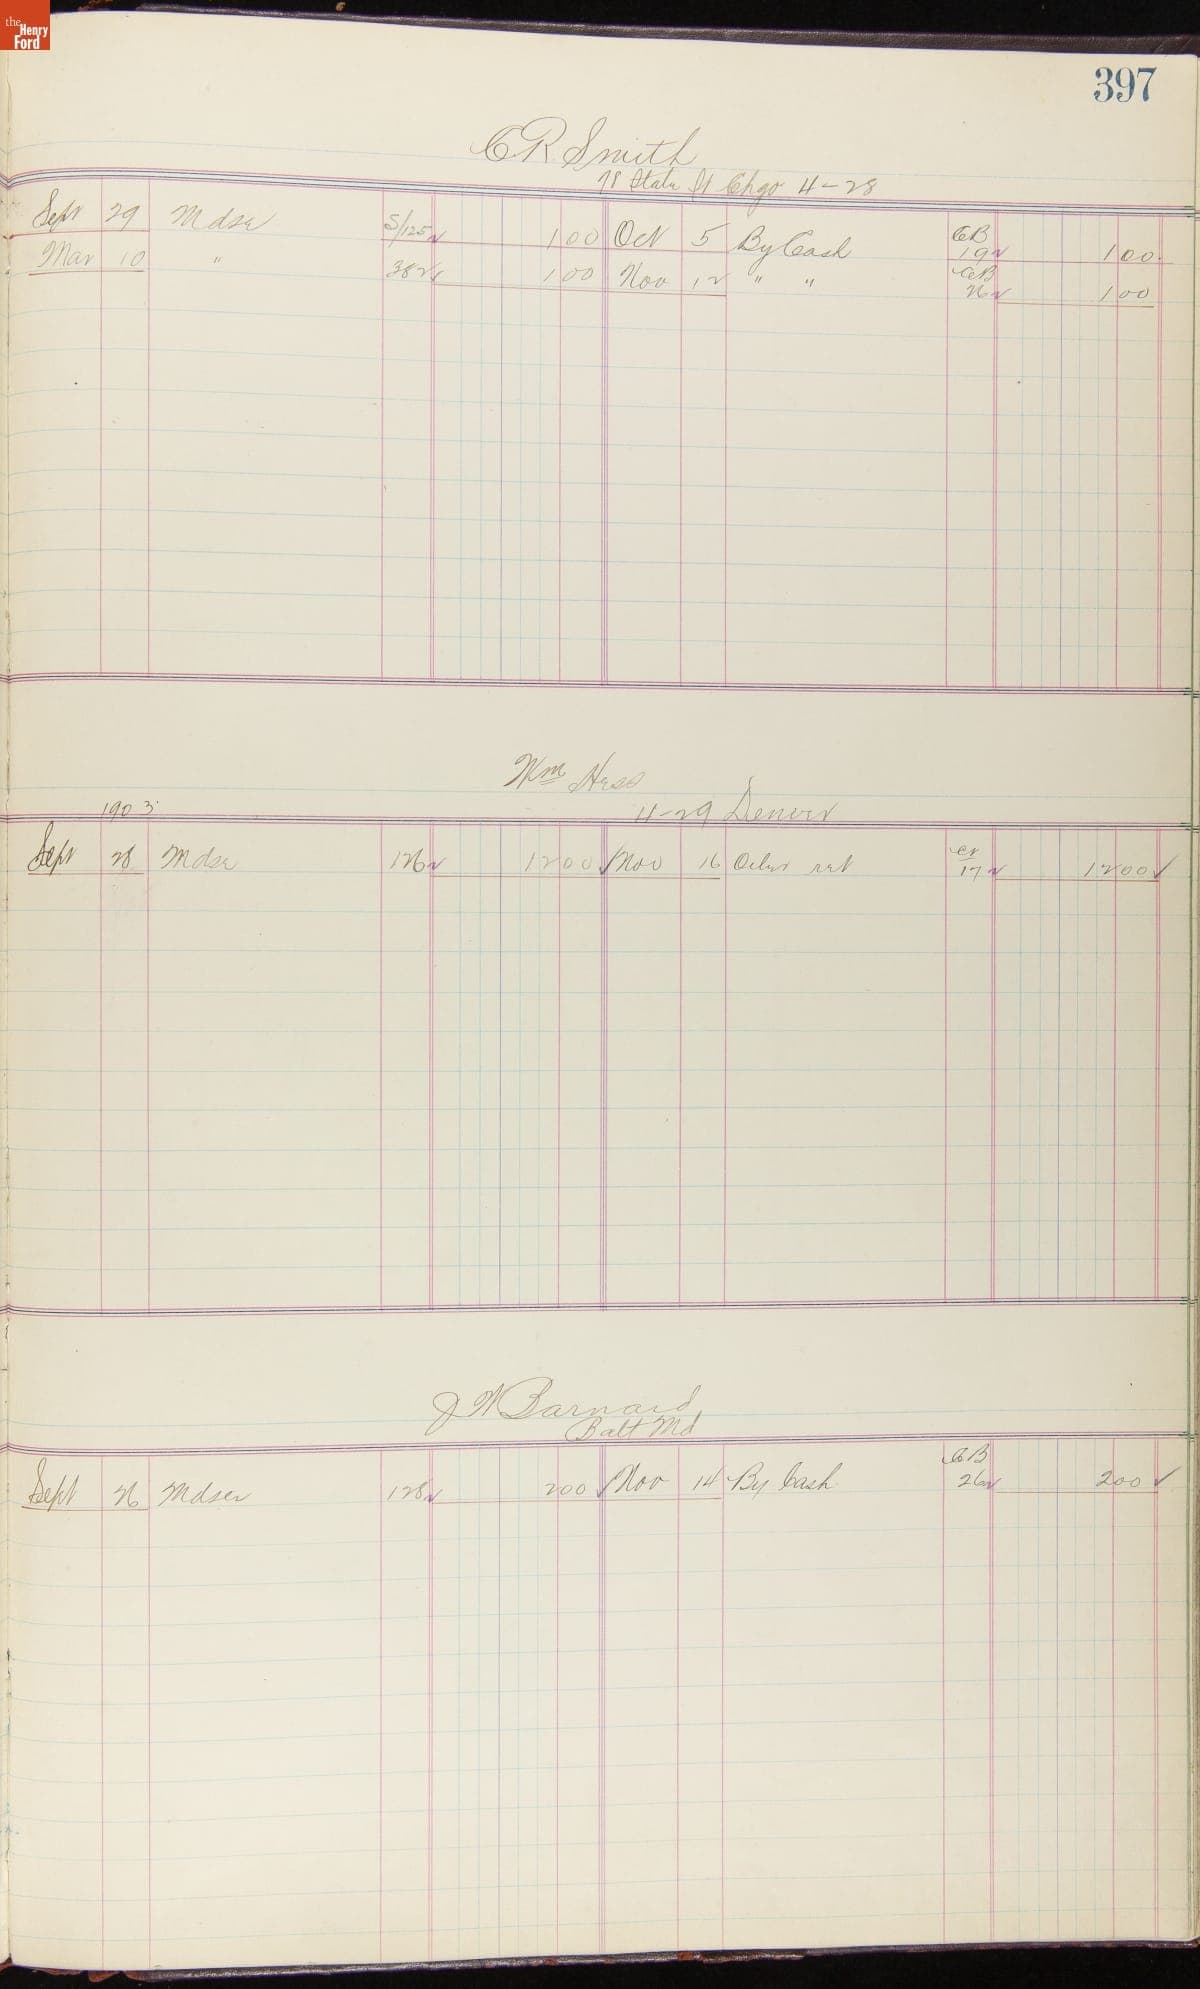 the Henry Ford
397
C R Smith
78 State St Chgo 4-28
Sept 29 Mdse S/125 1 00 Oct 5 By Cash CB 19 1 00
Mar 10 " 382 1 00 Nov 12 " " CB 26 1 00
Wm Hess
1903 4-29 Denver
Sept 28 Mdse 126 12 00 Nov 16 Oiler ret Cr 17 12 00
J W Barnard
Balt Md
Sept 26 Mdse 128 2 00 Nov 14 By Cash CB 26 2 00